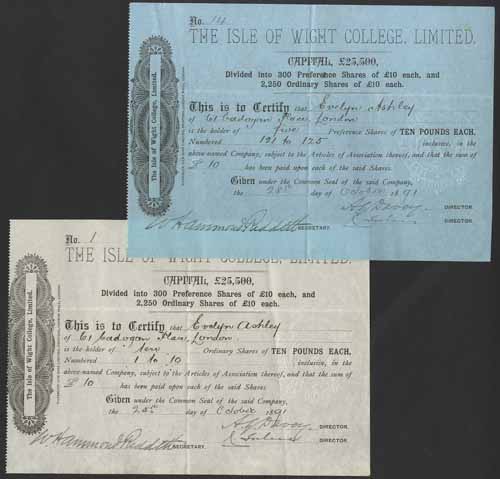 No. 14
THE ISLE OF WIGHT COLLEGE, LIMITED.
CAPITAL, £25,500,
Divided into 300 Preference Shares of £10 each, and
2,250 Ordinary Shares of £10 each.
This is to Certify that Evelyn Ashley
of 61 Cadogan Place, London
is the holder of five Preference Shares of TEN POUNDS EACH,
Numbered 121 to 125 inclusive, in the
above-named Company, subject to the Articles of Association thereof, and that the sum of
£ 10 has been paid upon each of the said Shares.
Given under the Common Seal of the said Company,
the day of October 1891
DIRECTOR.
W Hammond Riddett SECRETARY. DIRECTOR.
The Isle of Wight College, Limited.
No. 1
THE ISLE OF WIGHT COLLEGE, LIMITED.
CAPITAL, £25,500,
Divided into 300 Preference Shares of £10 each, and
2,250 Ordinary Shares of £10 each.
This is to Certify that Evelyn Ashley
of 61 Cadogan Place, London
is the holder of ten Ordinary Shares of TEN POUNDS EACH,
Numbered 1 to 10 inclusive, in the
above-named Company, subject to the Articles of Association thereof, and that the sum of
£ 10 has been paid upon each of the said Shares
Given under the Common Seal of the said Company,
the day of October 1891
DIRECTOR.
W Hammond Riddett SECRETARY. DIRECTOR.
The Isle of Wight College, Limited.